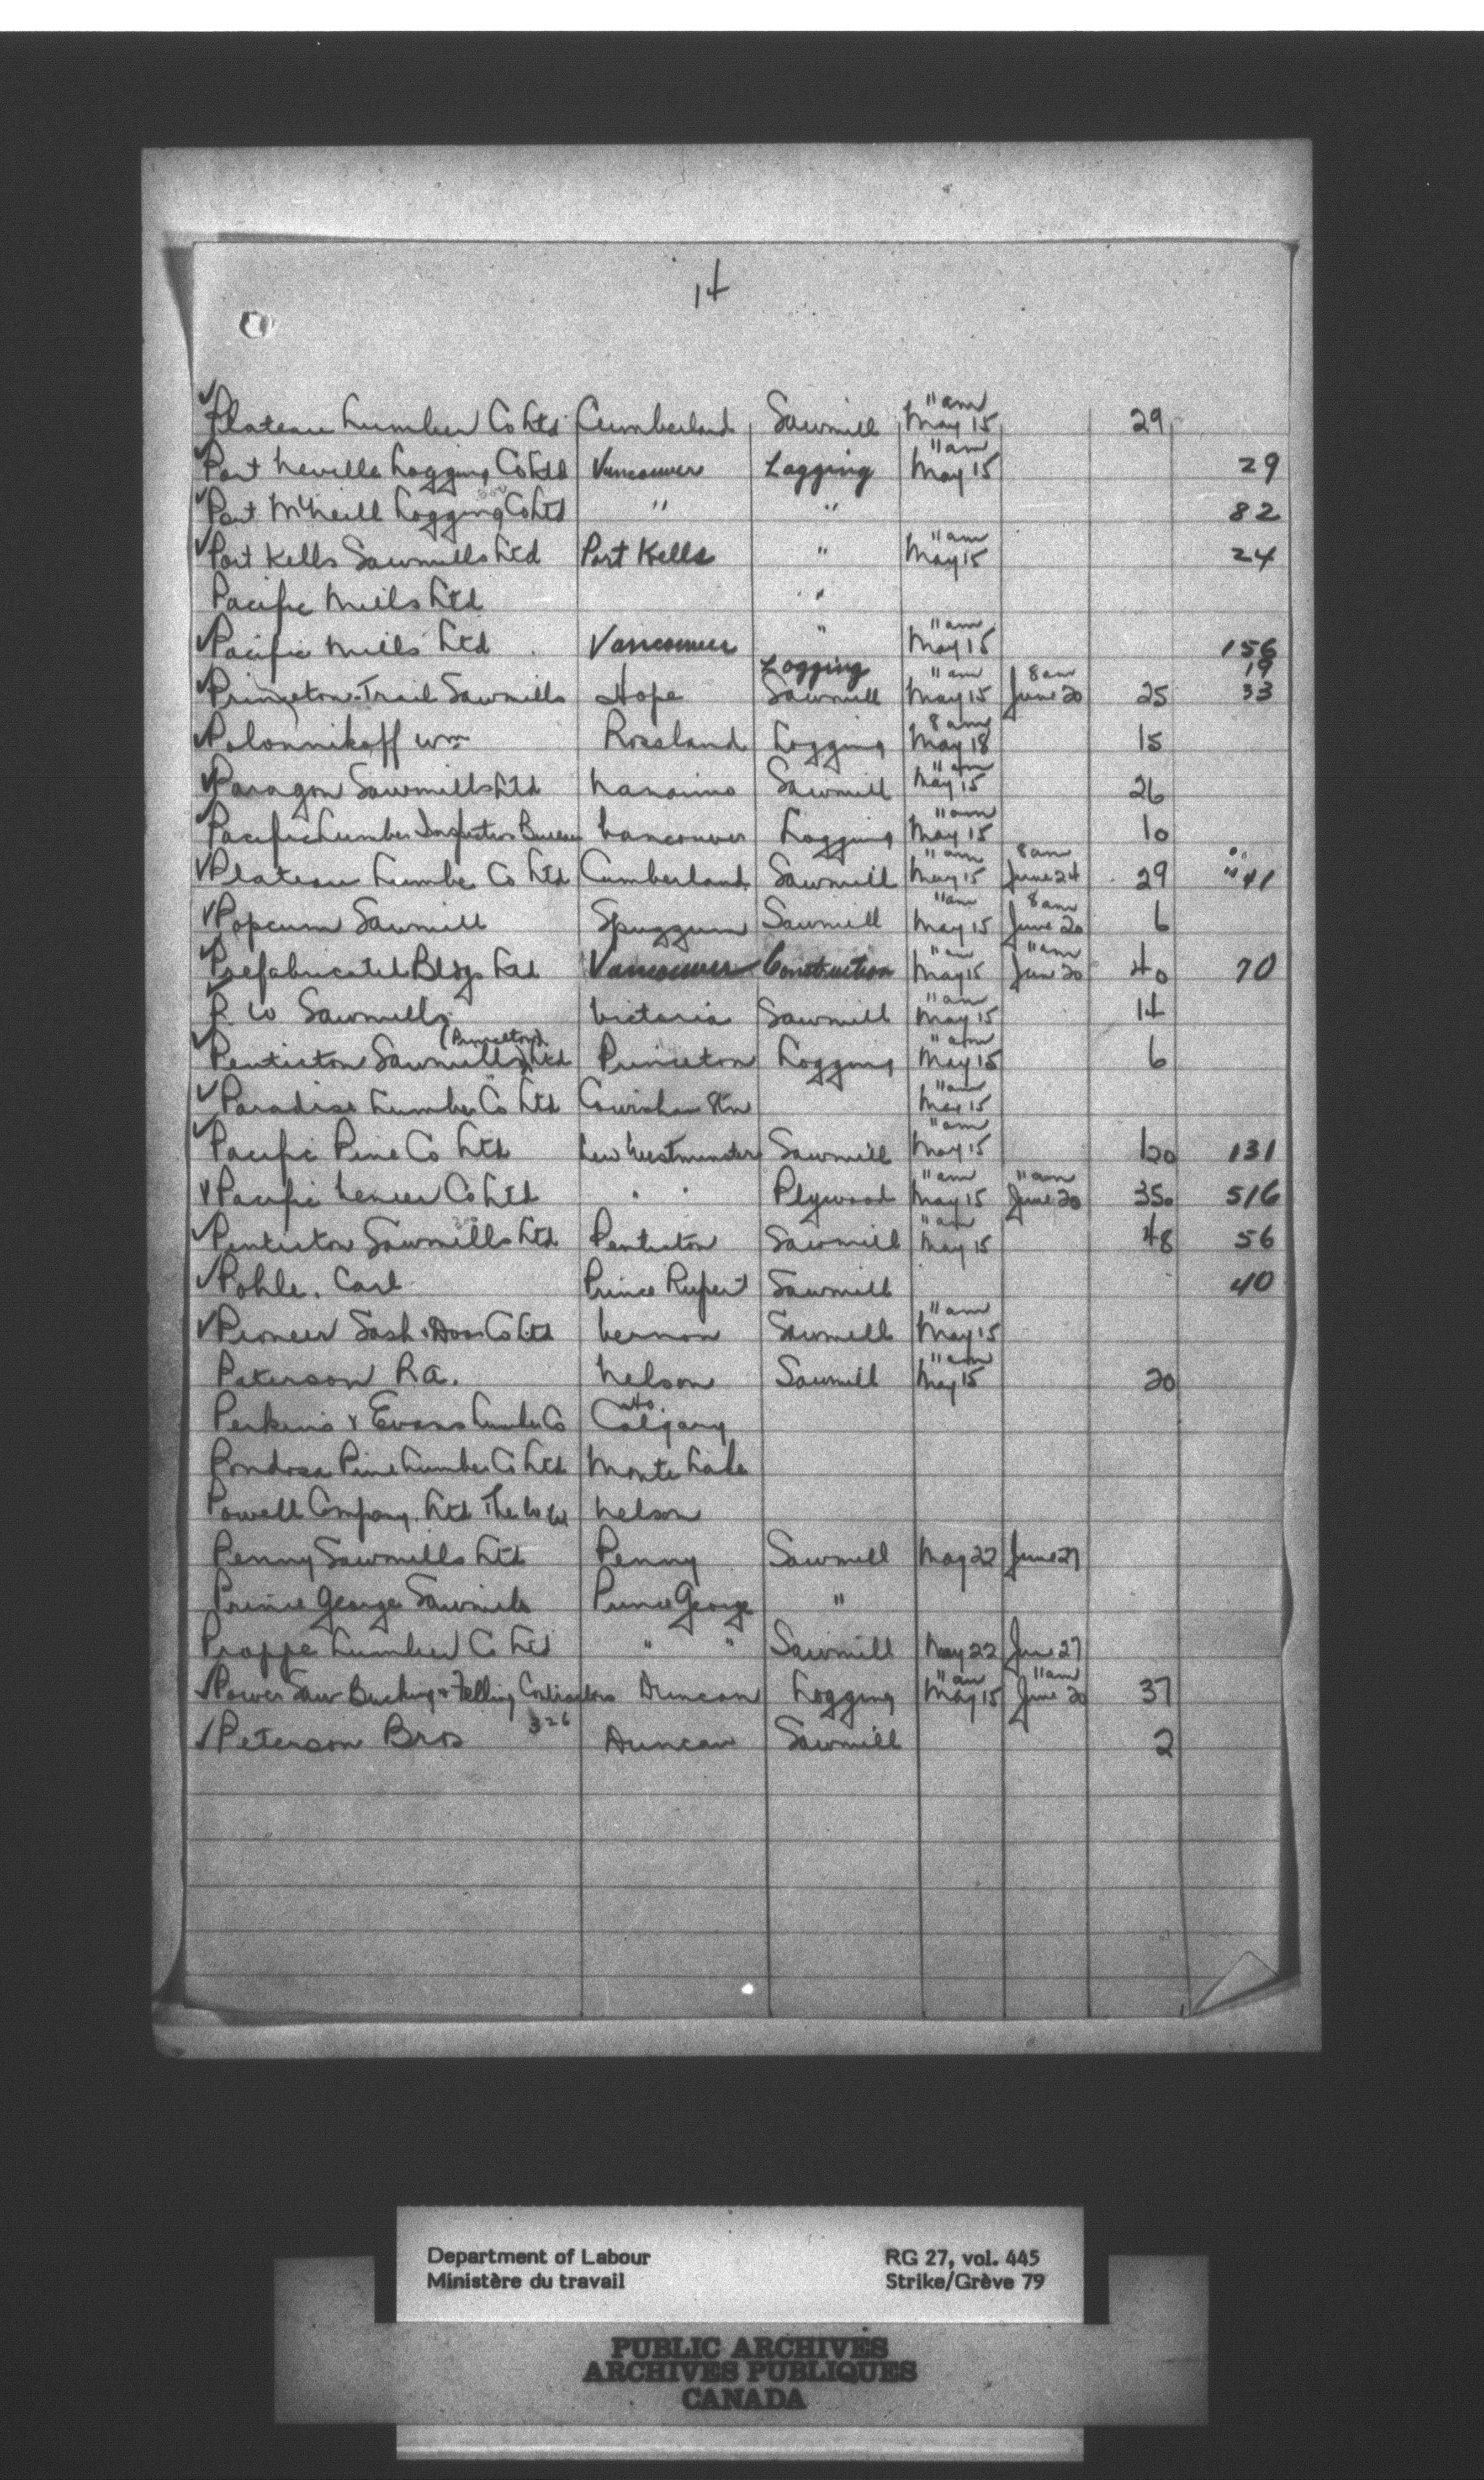 14
✓Plateau Lumber Co Ltd Cumberland Sawmill 11am May 15 29
✓Port Neville Logging Co Ltd Vancouver Logging 11am May 15 29
✓Port McNeill Logging Co Ltd " " 82
✓Port Kells Sawmills Ltd Port Kells " 11am May 15 24
Pacific Mills Ltd "
✓Pacific Mills Ltd Vancouver " 11am May 15 156
Logging 19
✓Princeton-Trail Sawmills Hope Sawmill 11am May 15 8am June 20 25 33
✓Polonnikoff Wm Rossland Logging 8am May 18 15
✓Paragon Sawmills Ltd Nanaimo Sawmill 11am May 15 26
✓Pacific Lumber Inspection Bureau Vancouver Logging 11am May 15 10
✓Plateau Lumber Co Ltd Cumberland Sawmill 11am May 15 8am June 24 29 41
✓Popcum Sawmill Spuzzum Sawmill 11am May 15 8am June 20 6
✓Prefabricated Bldgs Ltd Vancouver Construction 11am May 15 11am June 20 40 70
✓P. W Sawmills Victoria Sawmill 11am May 15 14
✓Penticton Sawmills (Princeton) Ltd Princeton Logging 11am May 15 6
✓Paradise Lumber Co Ltd Cowichan Stn 11am May 15
✓Pacific Pine Co Ltd New Westminster Sawmill 11am May 15 120 131
✓Pacific Veneer Co Ltd " " Plywood 11am May 15 11am June 20 350 516
✓Penticton Sawmills Ltd Penticton Sawmill 11am May 15 48 56
✓Pohle, Carl Prince Rupert Sawmill 40
✓Pioneer Sash & Door Co Ltd Vernon Sawmill 11am May 15
Paterson R.A. Nelson Sawmill 11am May 15 20
Perkins & Evans Lumber Co Calgary
Pondosa Pine Lumber Co Ltd Monte Lake
Powell Company Ltd The Nelson
Penny Sawmills Ltd Penny Sawmill May 22 June 27
Prince George Sawmills Prince George "
Proppe Lumber Co Ltd " " Sawmill May 22 June 27
✓Power Saw Bucking & Felling Contractors Duncan Logging 11am May 15 11am June 20 37
✓Peterson Bros 326 Duncan Sawmill 2
Department of Labour RG 27, vol. 445
Ministère du travail Strike/Grève 79
PUBLIC ARCHIVES
ARCHIVES PUBLIQUES
CANADA